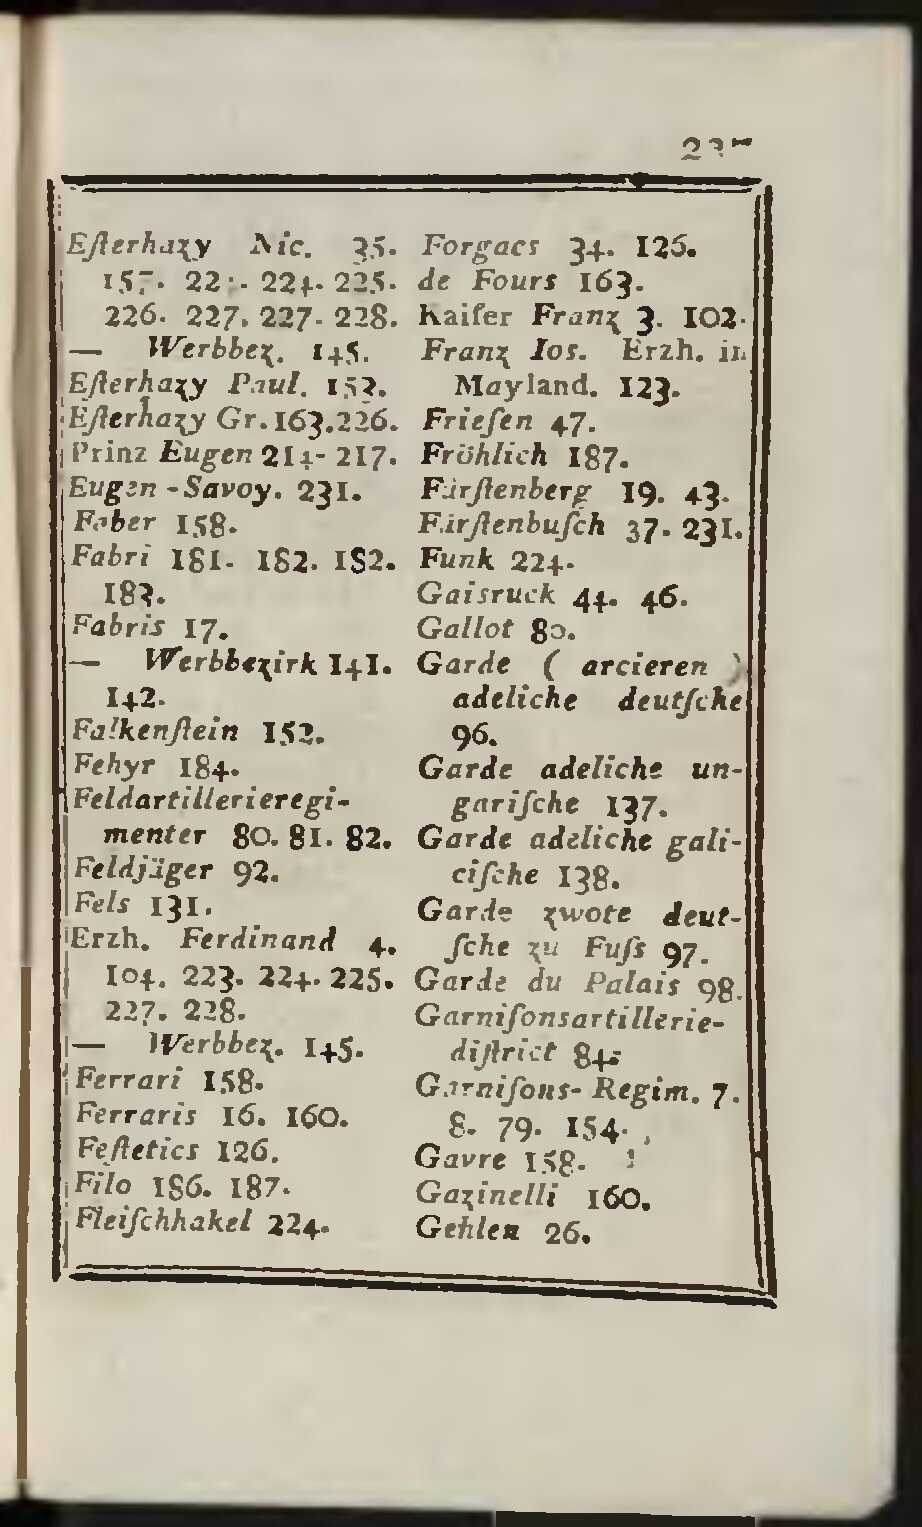 237
Eſterhazy Nic. 35.
157. 22 . 224. 225.
226. 227. 227. 228.
— Werbbez. 145.
Eſterhazy Paul. 152.
Eſterhazy Gr. 163. 226.
Prinz Eugen 214. 217.
Eugen-Savoy. 231.
Faber 158.
Fabri 181. 182. 182.
183.
Fabris 17.
— Werbbezirk 141.
142.
Falkenſtein 152.
Fehyr 184.
Feldartillerieregi-
menter 80. 81. 82.
Feldjäger 92.
Fels 131.
Erzh. Ferdinand 4.
104. 223. 224. 225.
227. 228.
— Werbbez. 145.
Ferrari 158.
Ferraris 16. 160.
Feſtetics 126.
Filo 186. 187.
Fleiſchhakel 224.
Forgacs 34. 126.
de Fours 163.
Kaiſer Franz 3. 102.
Franz Ios. Erzh. in
Mayland. 123.
Frieſen 47.
Fröhlich 187.
Fürſtenberg 19. 43.
Fürſtenbuſch 37. 231.
Funk 224.
Gaisruck 44. 46.
Gallot 80.
Garde ( arcieren )
adeliche deutſche
96.
Garde adeliche un-
gariſche 137.
Garde adeliche gali-
ciſche 138.
Garde zwote deut-
ſche zu Fuſs 97.
Garde du Palais 98.
Garniſonsartillerie-
diſtrict 84.
Garniſons-Regim. 7.
8. 79. 154.
Gavre 158.
Gazinelli 160.
Gehlen 26.